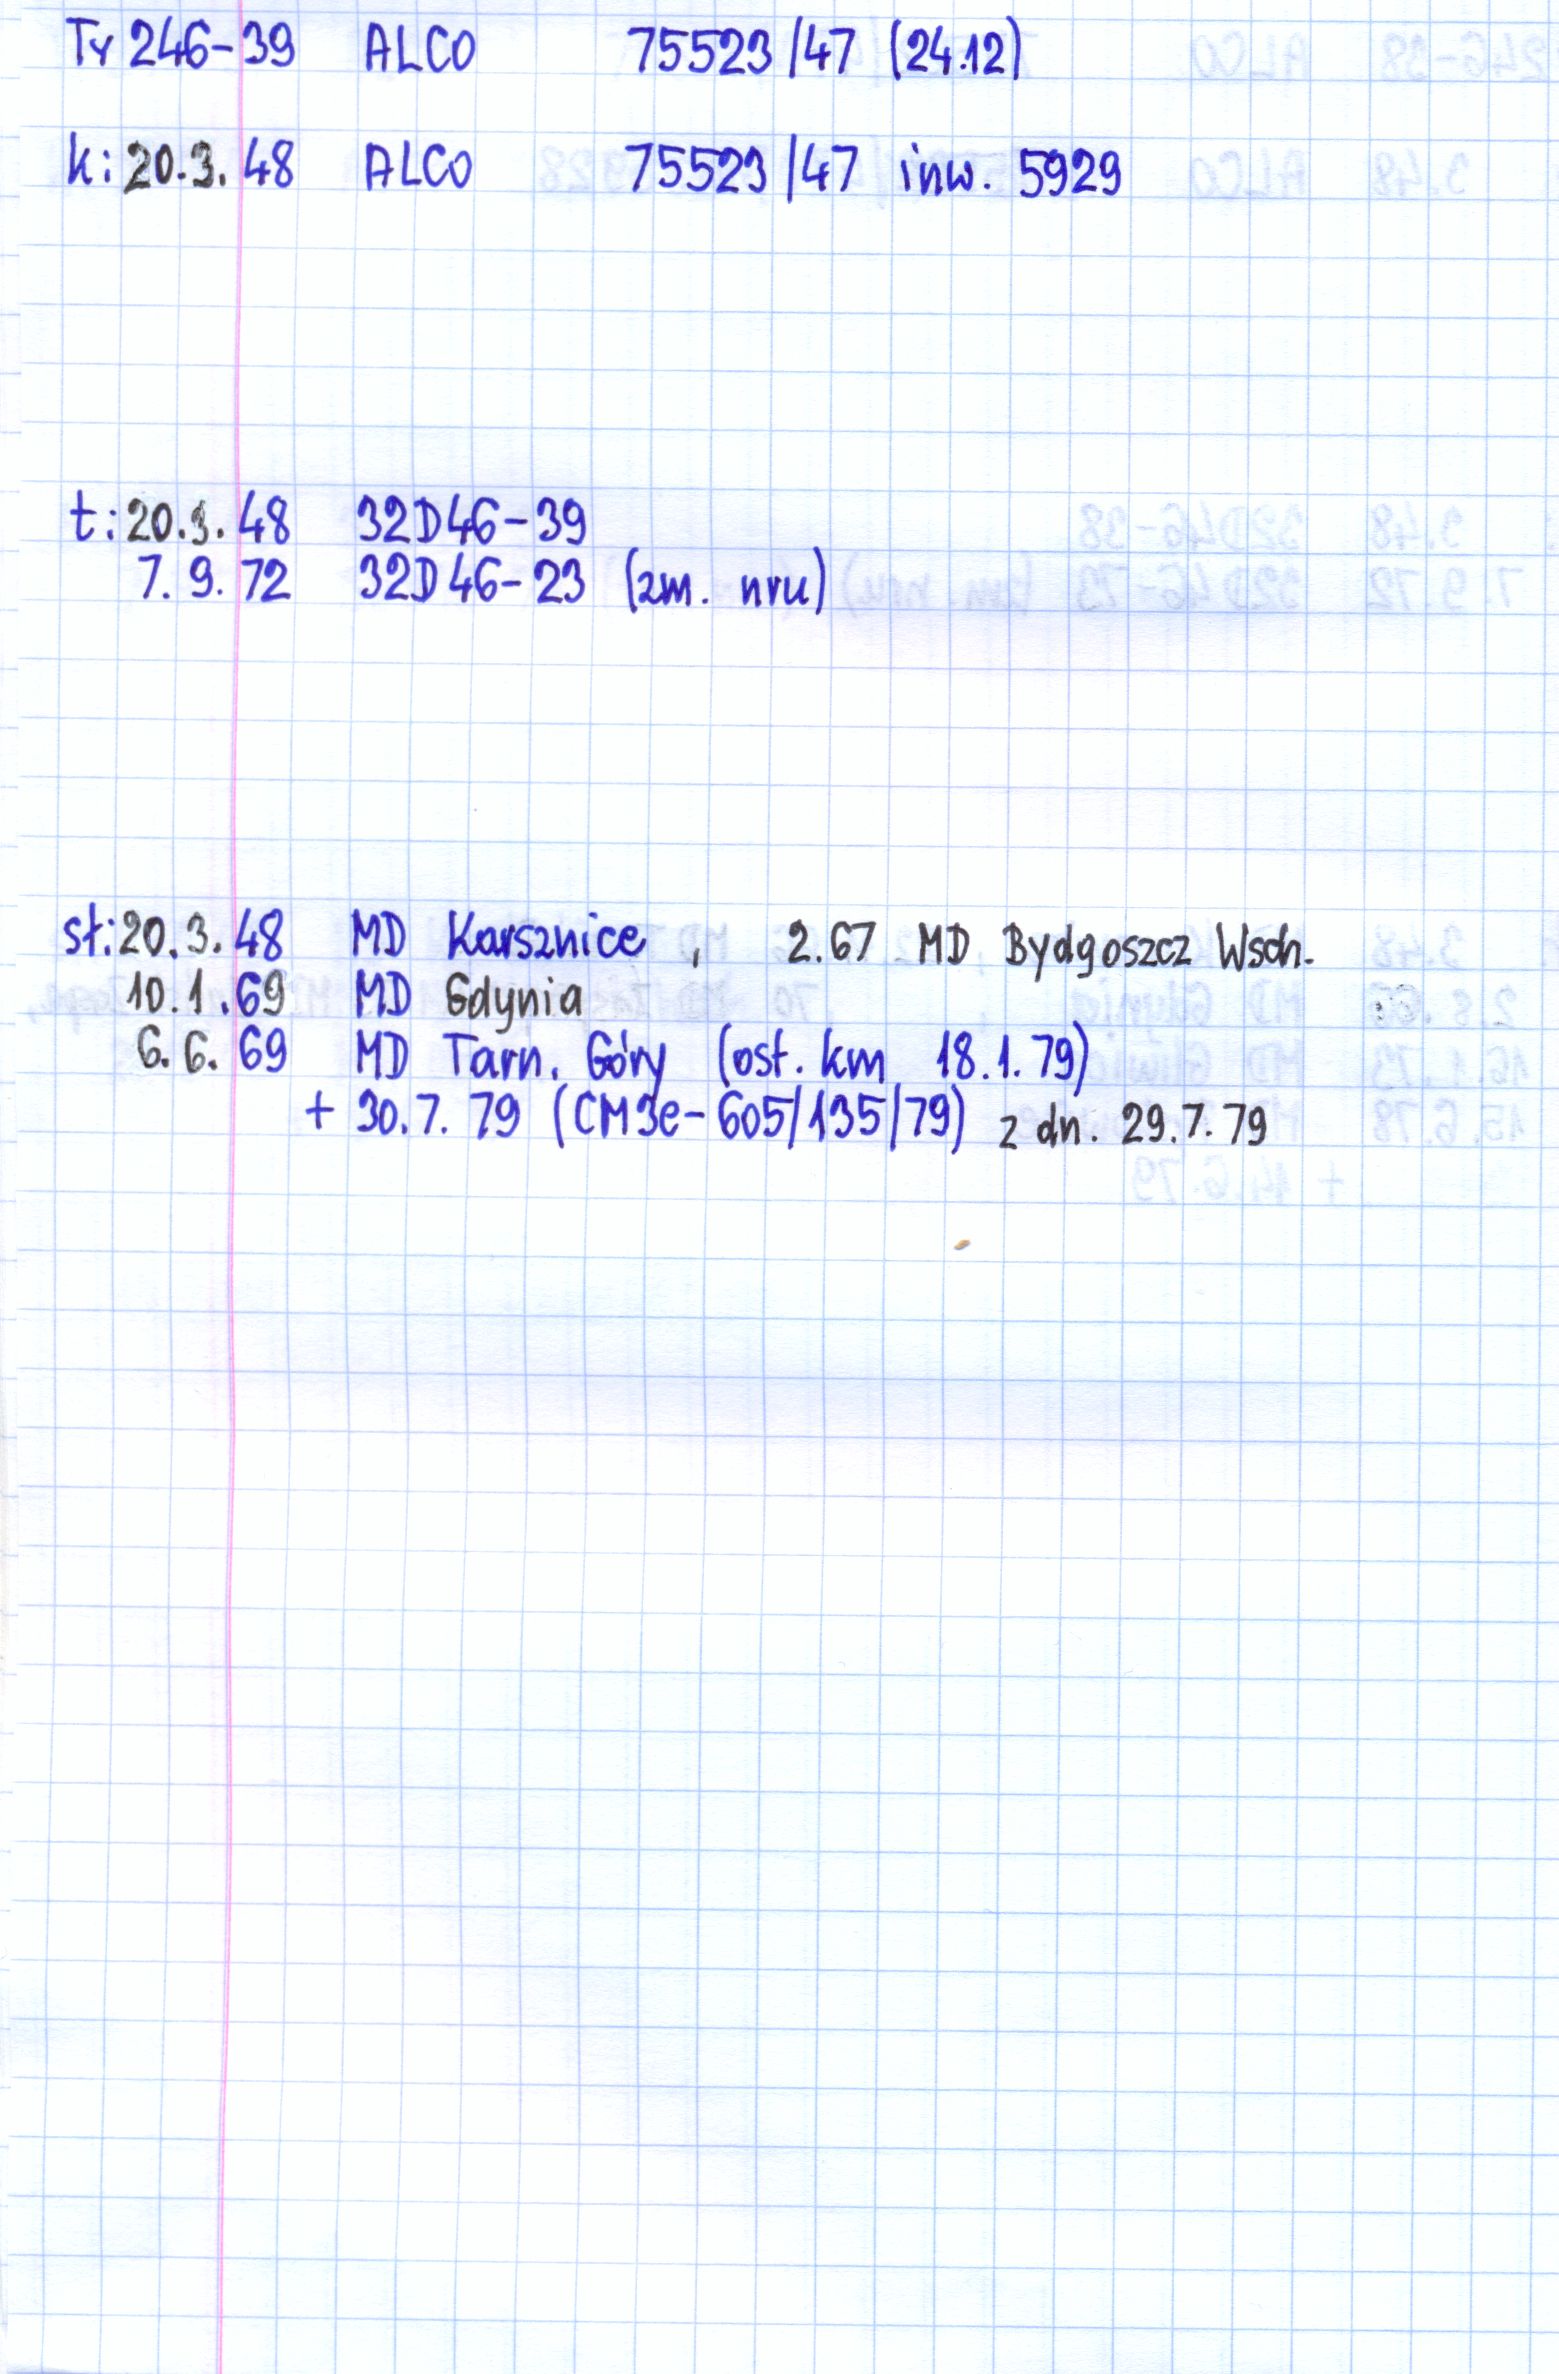 Ty 246-39 ALCO 75523/47 (24.12)
k: 20.3.48 ALCO 75523/47 inw. 5929
t: 20.3.48 32D46-39
7.9.72 32D46-23 (zm. nru)
st: 20.3.48 MD Karsznice , 2.67 MD Bydgoszcz Wsch.
10.1.69 MD Gdynia
6.6.69 MD Tarn. Góry (ost. km 18.1.79)
+ 30.7.79 (CM3e-605/135/79) z dn. 29.7.79